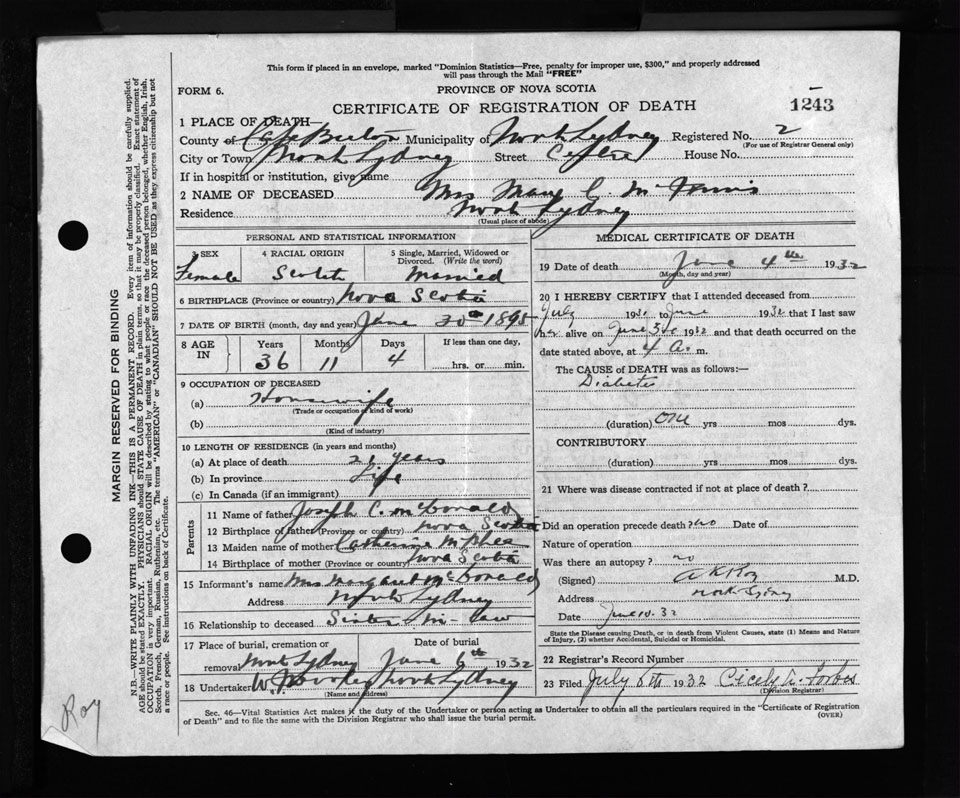 This form if placed in an envelope, marked "Dominion Statistics—Free, penalty for improper use, $300," and properly addressed
will pass through the Mail "FREE"
FORM 6.
PROVINCE OF NOVA SCOTIA
CERTIFICATE OF REGISTRATION OF DEATH
1243
1 PLACE OF DEATH—
County of Cape Breton Municipality of North Sydney Registered No. 2
(For use of Registrar General only)
City or Town North Sydney Street House No.
If in hospital or institution, give name
2 NAME OF DECEASED Mrs Mary C.
Residence North Sydney
(Usual place of abode)
PERSONAL AND STATISTICAL INFORMATION
3 SEX Female
4 RACIAL ORIGIN Scotch
5 Single, Married, Widowed or Divorced. (Write the word) Married
6 BIRTHPLACE (Province or country) Nova Scotia
7 DATE OF BIRTH (month, day and year) 30th 1895
8 AGE IN Years 36 Months 11 Days 4 If less than one day, hrs. or min.
9 OCCUPATION OF DECEASED
(a) Housewife
(Trade or occupation or kind of work)
(b)
(Kind of industry)
10 LENGTH OF RESIDENCE (in years and months)
(a) At place of death 21 years
(b) In province Life
(c) In Canada (if an immigrant)
Parents
11 Name of father Joseph C. McDonald
12 Birthplace of father (Province or country) Nova Scotia
13 Maiden name of mother Catherine McPhee
14 Birthplace of mother (Province or country) Nova Scotia
15 Informant's name Mrs Margaret McDonald
Address North Sydney
16 Relationship to deceased Sister in-law
17 Place of burial, cremation or removal North Sydney
Date of burial June 6th 1932
18 Undertaker North Sydney
(Name and address)
MEDICAL CERTIFICATE OF DEATH
19 Date of death June 4th 1932
(Month, day and year)
20 I HEREBY CERTIFY that I attended deceased from
July 193 to June 1932 that I last saw
her alive on June 3rd 1932 and that death occurred on the
date stated above, at 4 A. m.
The CAUSE OF DEATH was as follows:—
Diabetes
(duration) One yrs mos dys.
CONTRIBUTORY
(duration) yrs mos dys.
21 Where was disease contracted if not at place of death?
Did an operation precede death? no Date of
Nature of operation
Was there an autopsy? no
(Signed) A K Roy M.D.
Address North Sydney
Date June 10. 32
State the Disease causing Death, or in death from Violent Causes, state (1) Means and Nature
of Injury, (2) whether Accidental, Suicidal or Homicidal.
22 Registrar's Record Number
23 Filed July 8th 1932 Cicely A. Forbes
(Division Registrar)
Sec. 46—Vital Statistics Act makes it the duty of the Undertaker or person acting as Undertaker to obtain all the particulars required in the "Certificate of Registration
of Death" and to file the same with the Division Registrar who shall issue the burial permit.
(OVER)
MARGIN RESERVED FOR BINDING
N.B.—WRITE PLAINLY WITH UNFADING INK—THIS IS A PERMANENT RECORD. Every item of information should be carefully supplied.
AGE should be stated EXACTLY. PHYSICIANS should STATE CAUSE OF DEATH in plain terms, so that it may be properly classified. Exact statement of
OCCUPATION is very important. RACIAL ORIGIN will be described by stating to what people or race the deceased person belonged, whether English, Irish,
Scotch, French, German, Russian, Ruthenian, etc. The terms "AMERICAN" or "CANADIAN" SHOULD NOT BE USED as they express citizenship but not
a race or people. See instructions on back of Certificate.
Roy